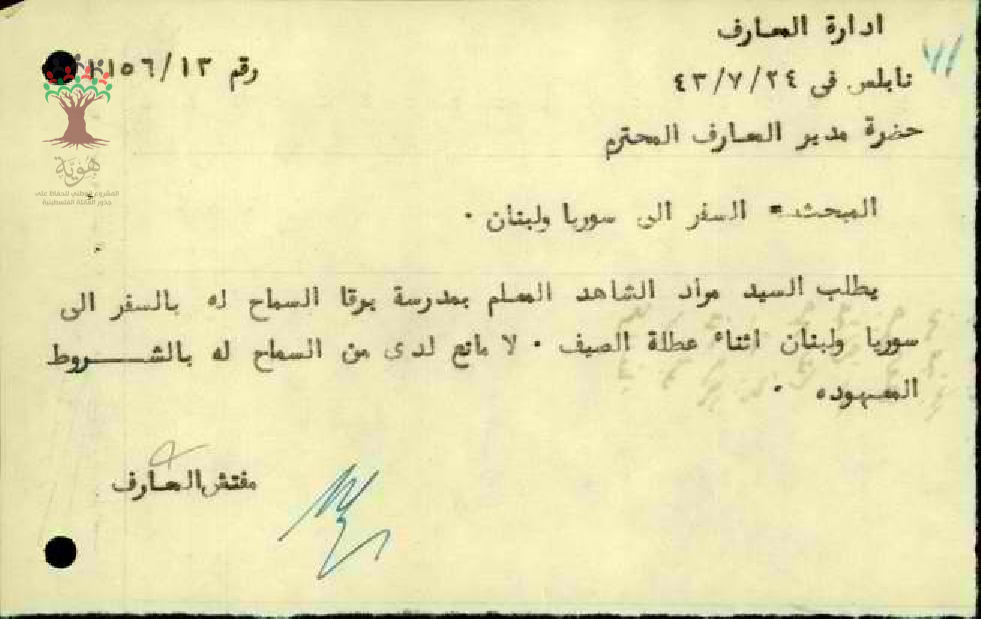 ادارة المعارف
رقم ٢١٥٦/١٣
نابلس فى ٤٣/٧/٢٤
حضرة مدير المعارف المحترم
هَوِيَّة
المشروع الوطني للحفاظ على
جذور العائلة الفلسطينية
المبحث= السفر الى سوريا ولبنان ٠
يطلب السيد مراد الشاهد المعلم بمدرسة برقا السماح له بالسفر الى
سوريا ولبنان اثناء عطلة الصيف ٠ لا مانع لدى من السماح له بالشروط
المعهوده ٠
مفتش المعارف